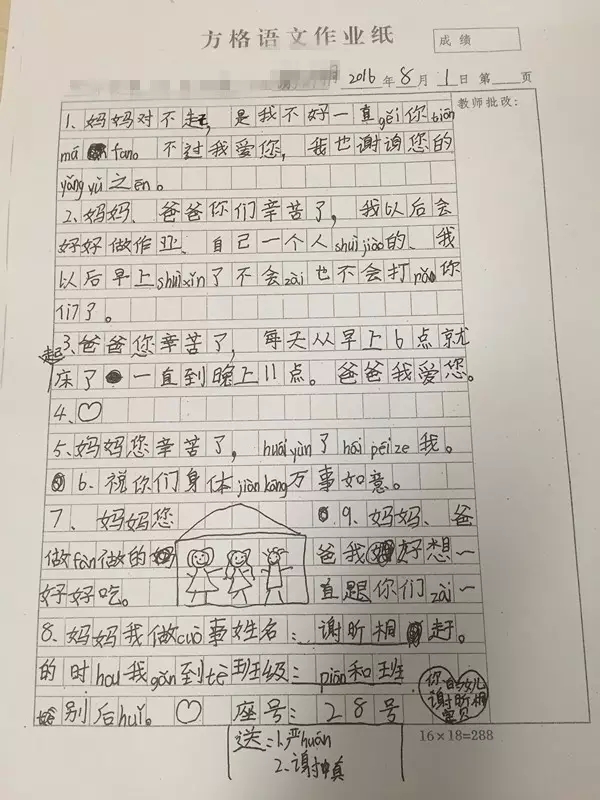 方格语文作业纸
成绩
2016年8月1日第 页
教师批改:
1、妈妈对不起，是我不好一直gěi你tiān
má fan。不过我爱您，我也谢谢您的
yǎng yù之ēn。
2、妈妈、爸爸你们辛苦了，我以后会
好好做作业、自己一个人shuì jiào的、我
以后早上shuì xǐn了不会zài也不会打nǎo你
们了。
3、爸爸您辛苦了，每天从早上6点就
起床了一直到晚上11点。爸爸我爱您。
4、♡
5、妈妈您辛苦了，huái yùn了hái péi ze我。
6、祝你们身体jiàn kāng万事如意。
7、妈妈您
做fàn做的
好好吃。
9、妈妈、爸
爸我好想一
直跟你们zài一
起。
8、妈妈我做cuò事
的时hou我gǎn到tè
别后huǐ。♡
姓名：谢昕桐
班级：piān和班
座号：28号
你的女儿
谢昕桐
宝贝
送：1.严huān
2.谢坤真
16×18=288